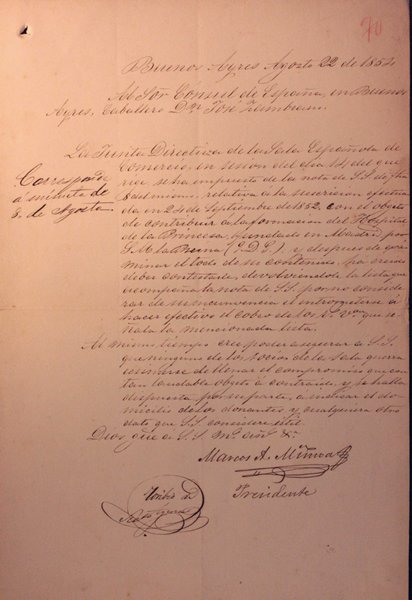 70
Buenos Ayres Agosto 22 de 1854
Al Sor Cónsul de España, en Buenos
Ayres, Caballero Dn José Zambrano.
La Junta Directiva de la Sala Española de
Comercio, en union del dia 14 del que
rige, se ha impuesto de la nota de S.S. de fha
8 del mismo, relativa a la suscricion efectua
da en 24 de Septiembre de 1852, con el objeto
de contribuir a la formacion del Hospital
de la Princesa, fundado en Madrid por
S.M. la Reina (q. D. g.) y despues de
minar el todo de su contenido, ha creido
deber contestarle, devolviendole la lista que
acompaña la nota de S.S. por no conside
rar de su incumbencia el entrometerse á
hacer efectivo el cobro de los que se
ñala la mencionada lista.
Corresponde
a minuta de
8. de Agosto.
Al mismo tiempo cree poder asegurar a S.S.
que ninguno de los socios de la Sala querra
eximirse de llenar el compromiso que con
tan laudable objeto á contraido, y se halla
dispuesta, por su parte, a indicar el do
micilio de los donantes y cualquiera otro
dato que S.S. considere util.
Dios gue a S.S. ms. as.
Marcos A. Muñoa
Presidente